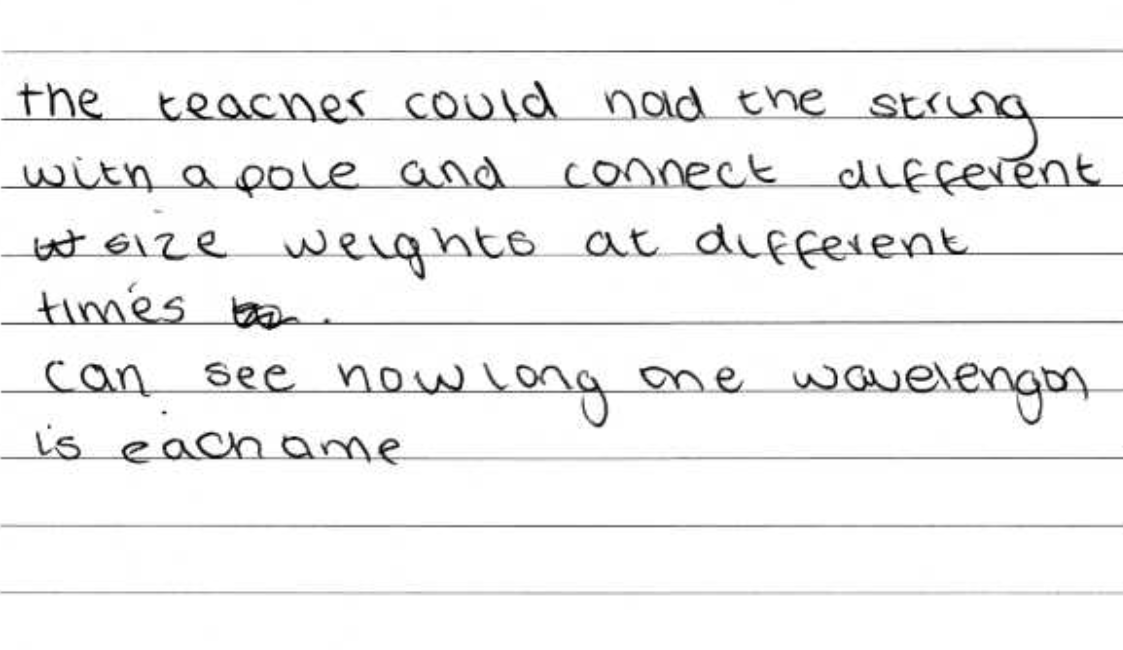 the teacher could hold the string
with a pole and connect different
size weights at different
times .
can see how long one wavelength
is each time